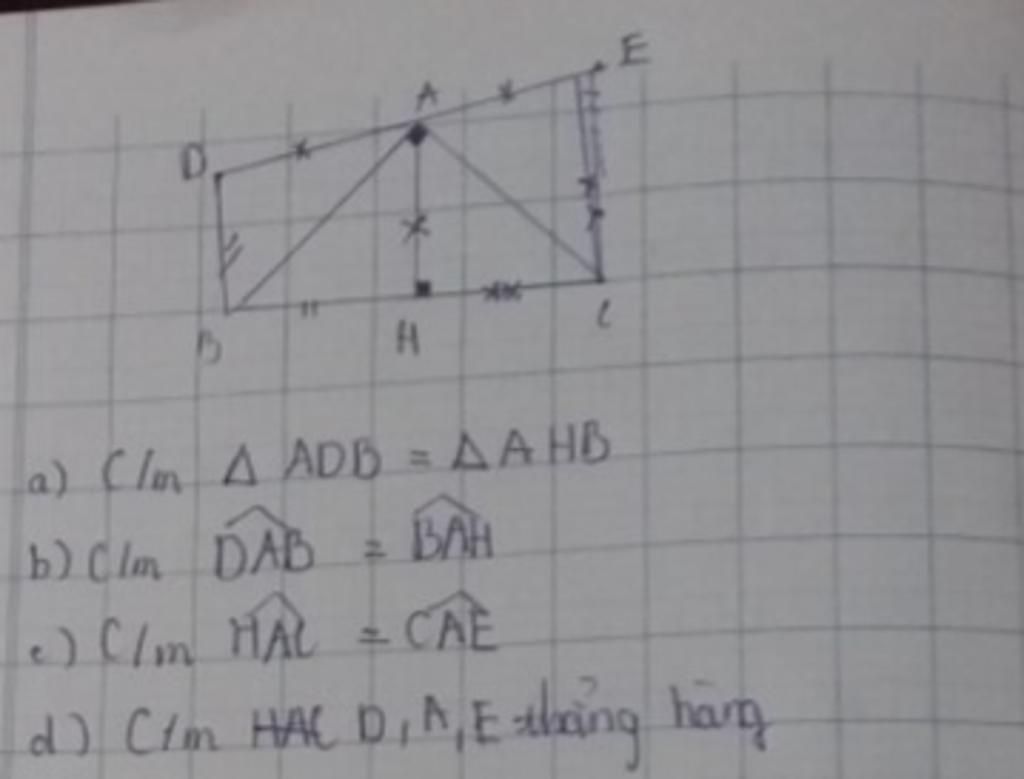 E
A
D
B H C
a) C/m Δ ADB = Δ AHB
b) C/m DAB̂ = BAĤ
c) C/m HAĈ = CAÊ
d) C/m HAC D, A, E thẳng hàng